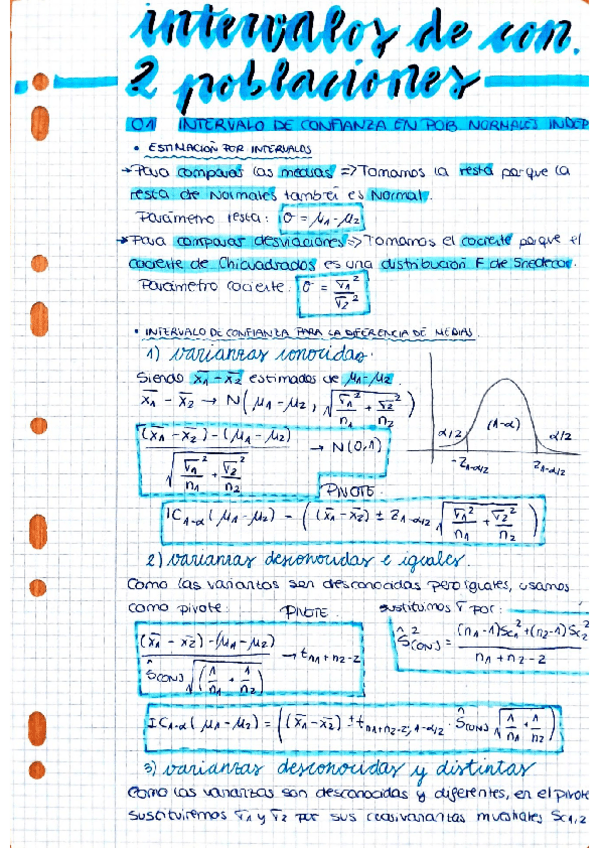 intervalos de con.
2 poblaciones
01 INTERVALO DE CONFIANZA EN POB. NORMALES INDEP
• ESTIMACIÓN POR INTERVALOS
→ Para comparar las medias => Tomamos la resta porque la
resta de Normales también es Normal.
Parámetro resta: θ = μ1 - μ2
→ Para comparar desviaciones => Tomamos el cociente porque el
cociente de Chicuadrados es una distribución F de Snedecor.
Parámetro cociente: θ = σ1² / σ2²
• INTERVALO DE CONFIANZA PARA LA DIFERENCIA DE MEDIAS.
1) varianzas conocidas.
Siendo x̄1 - x̄2 estimados de μ1 - μ2.
x̄1 - x̄2 → N(μ1 - μ2, √(σ1²/n1 + σ2²/n2))
α/2 (1-α) α/2
-Z1-α/2 Z1-α/2
((x̄1 - x̄2) - (μ1 - μ2)) / √(σ1²/n1 + σ2²/n2) → N(0,1)
PIVOTE
IC1-α(μ1 - μ2) = ((x̄1 - x̄2) ± Z1-α/2 √(σ1²/n1 + σ2²/n2))
2) varianzas desconocidas e iguales.
Como las varianzas son desconocidas pero iguales, usamos
como pivote: PIVOTE. sustituimos σ por:
((x̄1 - x̄2) - (μ1 - μ2)) / (Ŝconj √(1/n1 + 1/n2)) → t n1+n2-2
Ŝ²conj = ((n1-1)Sc1² + (n2-1)Sc2²) / (n1+n2-2)
IC1-α(μ1 - μ2) = ((x̄1 - x̄2) ± t n1+n2-2; 1-α/2 · Ŝconj √(1/n1 + 1/n2))
3) varianzas desconocidas y distintas
Como las varianzas son desconocidas y diferentes, en el pivote
sustituiremos σ1 y σ2 por sus cuasivarianzas muestrales Sc1,2